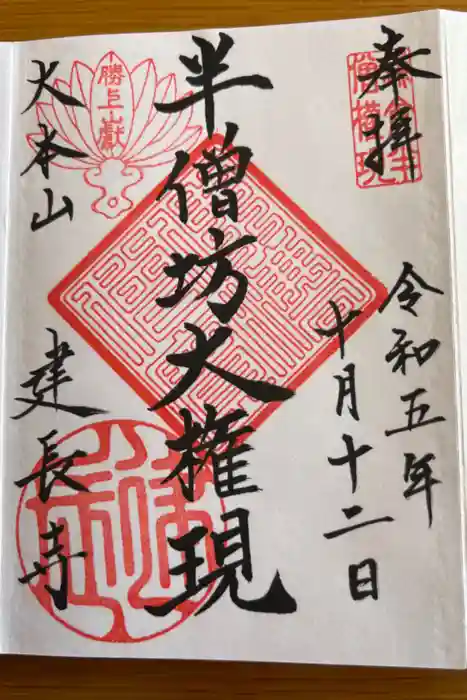 奉拝
令和五年
十月十二日
半僧坊大権現
勝上山獻
大本山
建長寺